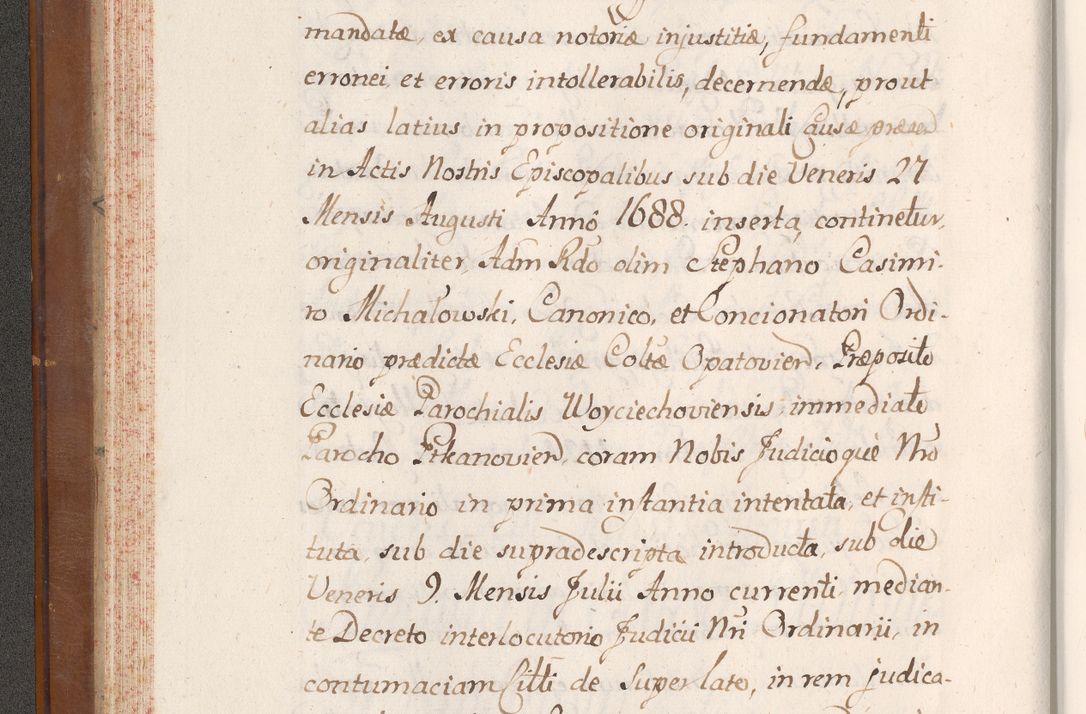 mandatæ, ex causa notoriæ injustitiæ, fundamenti
erronei et erroris intollerabilis, decernendæ, prout
alias latius in propositione originali Causæ præsen
in Actis Nostris Episcopalibus sub die Veneris 27
Mensis Augusti Annô 1688. inserta, continetur,
originaliter, Adm Rdo olim Stephano Casimi-
ro Michałowski, Canonico, et Concionatori Ordi-
nario prædictæ Ecclesiæ Coltæ Opatovien, Præposito
Ecclesiæ Parochialis Woyciechoviensis, immediato
Parocho Ptkanovien, coram Nobis Judicioquè Nro
Ordinario in prima instantia intentata, et insti-
tuta, sub die supradescripta introducta, sub die
Veneris 9. Mensis Julii Anno currenti, median-
te Decreto interlocutorio Judicii Nri Ordinarii, in
contumaciam Citti de Super lato, in rem judica-